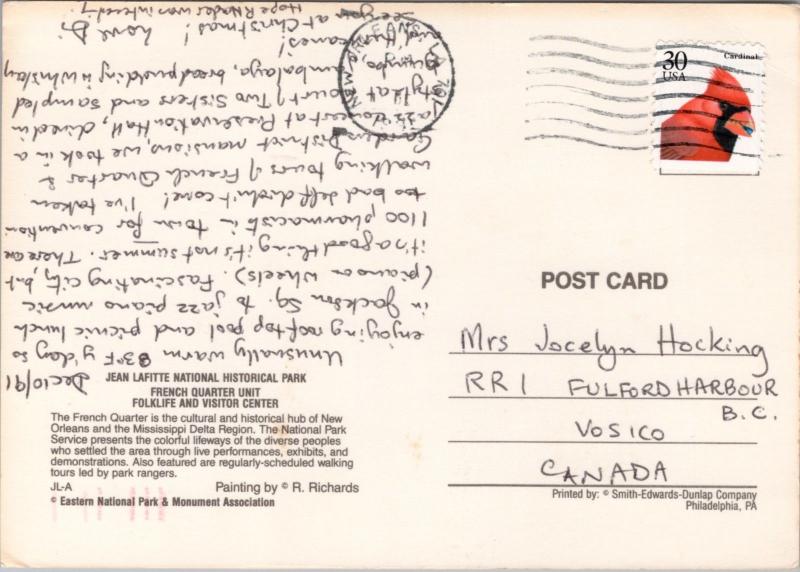 Dec 10/91
Unusually warm 83°F yday so
enjoying rooftop pool and picnic lunch
in Jackson Sq. to jazz piano music
(piano on wheels). Fascinating city, but
it's a good thing it's not summer. There are
1100 pharmacists in town for convention
too bad Jeff didn't come! I've taken
walking tours of French Quarter &
Garden District mansions, we took in a
jazz concert at Preservation Hall, dined in
style at Court Two Sisters and sampled
gumbo, jambalaya, breadpudding in whiskey
and hurricanes!
see you at Christmas! love Di
Hope R Nader won interest?
NEW ORLEANS, LA 701
30
USA
Cardinal
POST CARD
Mrs Jocelyn Hocking
RR1 FULFORD HARBOUR
B.C.
V0S1C0
CANADA
JEAN LAFITTE NATIONAL HISTORICAL PARK
FRENCH QUARTER UNIT
FOLKLIFE AND VISITOR CENTER
The French Quarter is the cultural and historical hub of New
Orleans and the Mississippi Delta Region. The National Park
Service presents the colorful lifeways of the diverse peoples
who settled the area through live performances, exhibits, and
demonstrations. Also featured are regularly-scheduled walking
tours led by park rangers.
JL-A Painting by © R. Richards
© Eastern National Park & Monument Association
Printed by: © Smith-Edwards-Dunlap Company
Philadelphia, PA